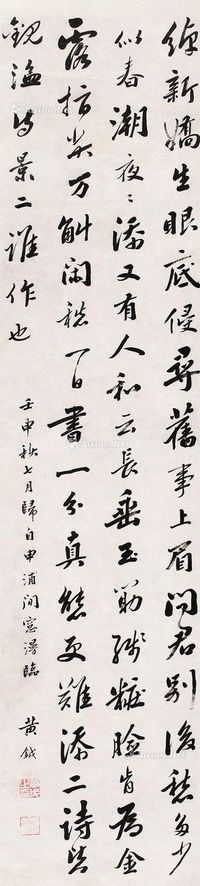 綽新嬌生眼底侵尋舊事上眉問君別後愁多少
似春潮夜〻添又有人和云長垂玉筯殘粧臉肯為金
露指尖万斛閑愁一日書一分真態更難添二詩皆
觀溢詩景二誰作也
壬申秋七月歸自申浦閒窓漫臨 黃鉞